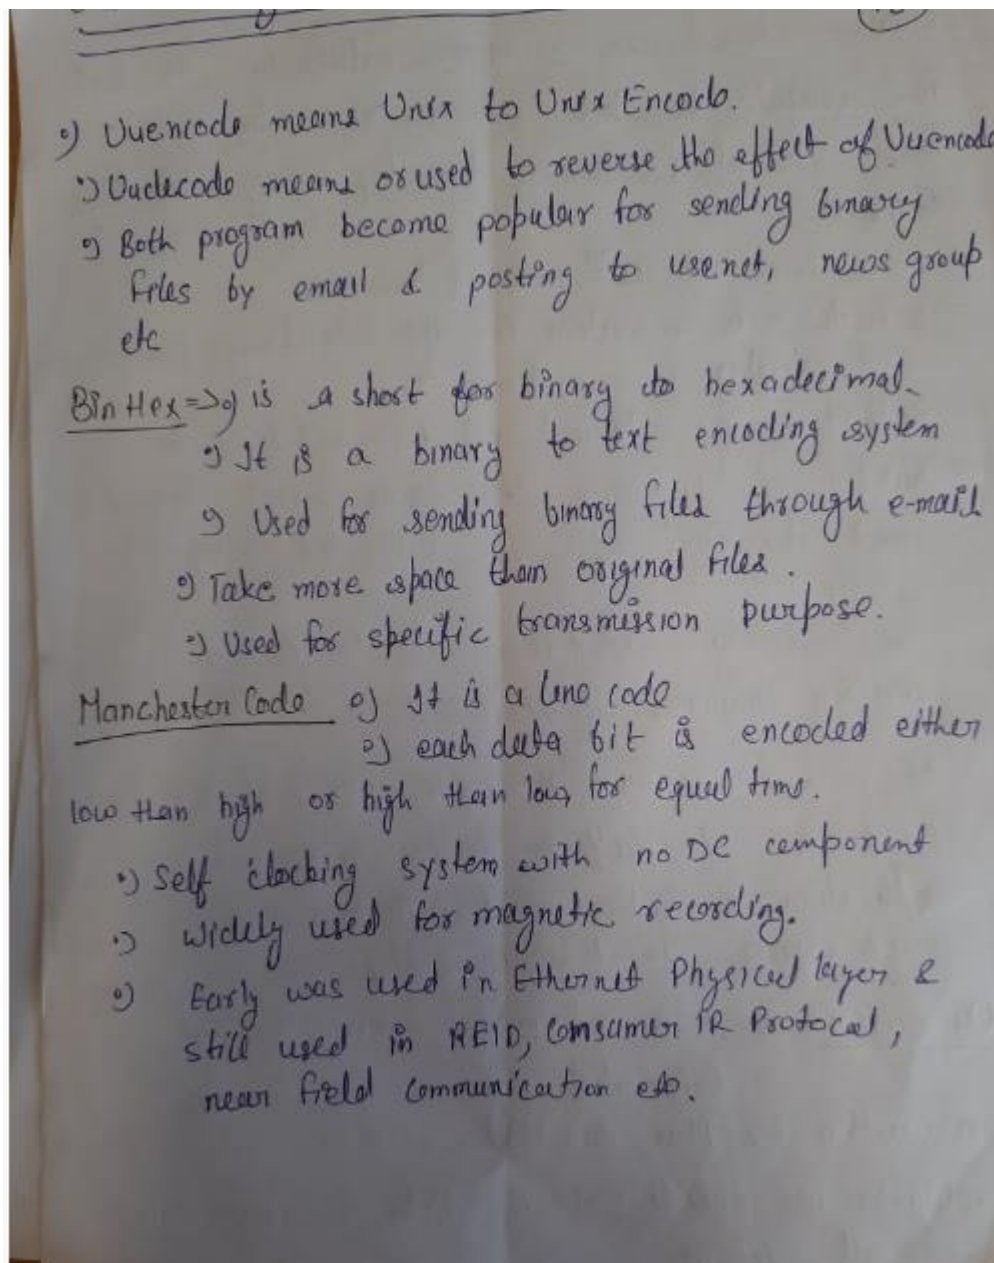 •) Uuencode means Unix to Unix Encode.
•) Uudecode means or used to reverse the effect of Uuencode
•) Both program become popular for sending binary
files by email & posting to usenet, news group
etc
BinHex => •) is a short for binary to hexadecimal.
•) It is a binary to text encoding system
•) Used for sending binary files through e-mail
•) Take more space than original files.
•) Used for specific transmission purpose.
Manchester Code •) It is a line code
•) each data bit is encoded either
low than high or high than low, for equal time.
•) Self clocking system with no DC component
•) Widely used for magnetic recording.
•) Early was used in Ethernet Physical layer &
still used in RFID, Consumer IR Protocal,
near field communication etc.